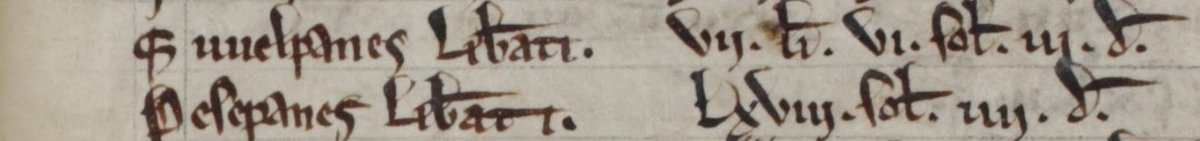 Suuelpanes Lib̄ati. vij. li̅. vi. sol̅. iij. d̅.
Pesepanes Lib̄ati. Lxviij. sol̅. iiij. d̅.